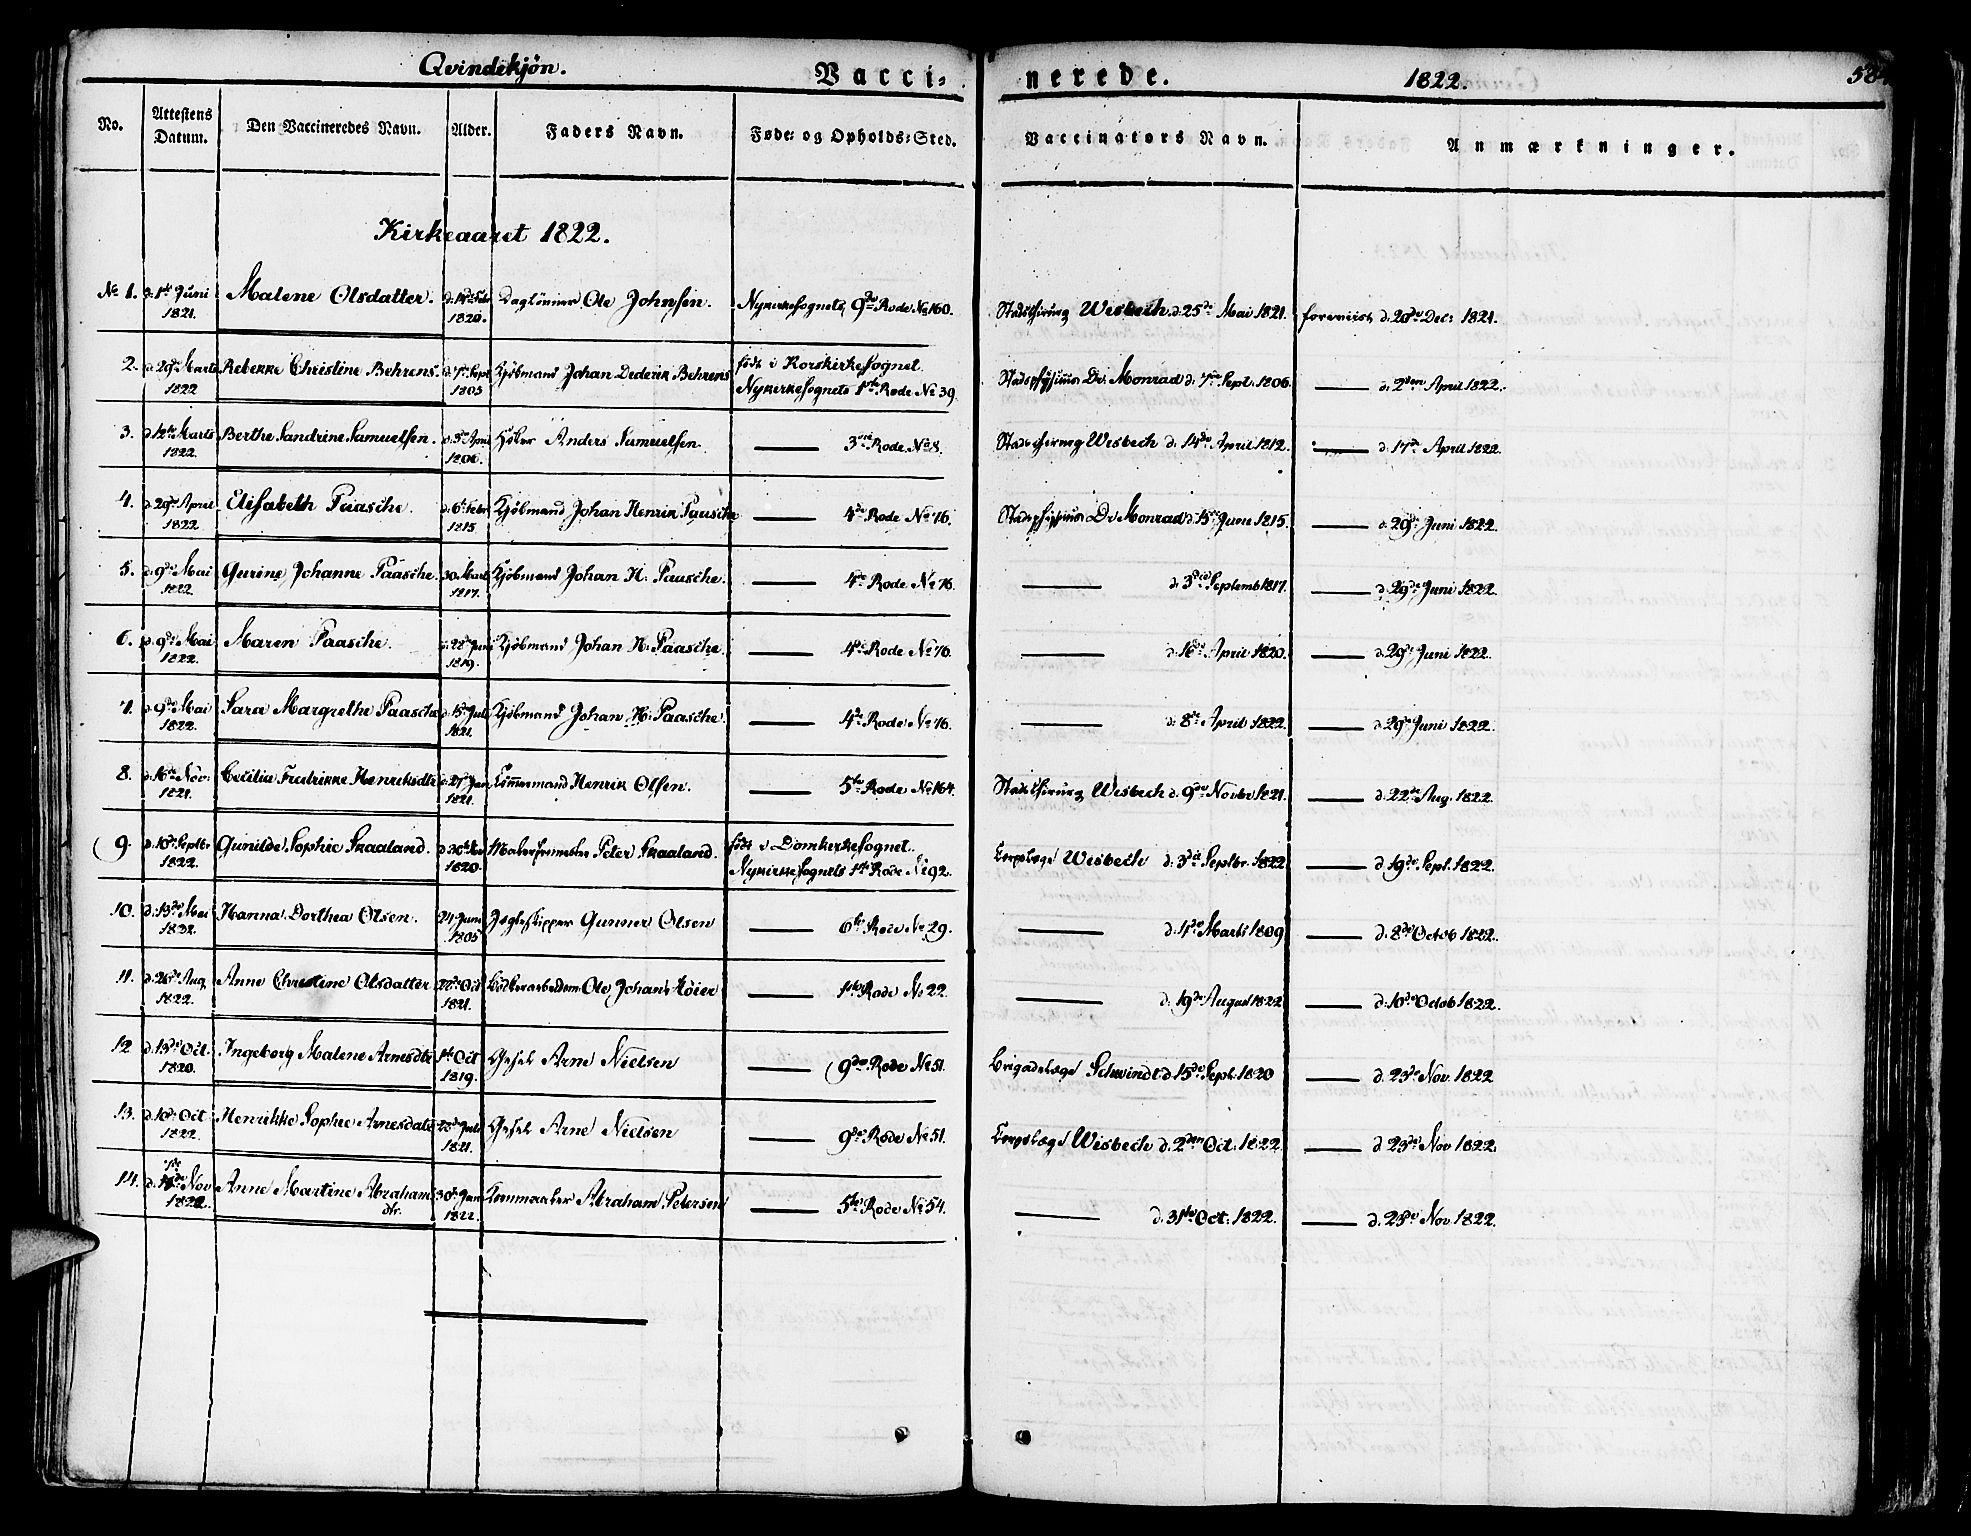 Qvindekjön. Vacci= nerede. 1822. 58
No. Attestens Datum. Den Vaccineredes Navn. Alder. Faders Navn. Føde= og Opholds=Sted. Vaccinators Navn. Anmærkninger.
Kirkeaaret 1822.
No 1. d. 1ste Juni 1821. Malene Olsdatter. 1820. Daglönner Ole Johnsen. Nykirkesognets 9de Rode No 160. Stadschirurg Wisbech d. 25de Mai 1821. foreviist d. 20de Dec: 1821.
2. d. 29de Marts 1822 Rebekke Christine Behrens. d. 7de Sept 1805 Kjöbmand Johan Dederik Behrens födt i Korskirkesognet. Nykirkesognets 1ste Rode No 39. Stadsphysicus Dr. Monrad d. 7de Sept. 1806. — d. 2den April 1822.
3. d. 12te Marts 1822. Berthe Sandrine Samuelsen. 1806. Anders Samuelsen. — 3die Rode No 8. Stadschirurg Wisbech d. 14de April 1812. — d. 17de April 1822.
4. d. 29de April 1822 Elisabeth Paasche. d. 6te Febr 1815 Kjöbmand Johan Henrik Paasche — 4de Rode No 76. Stadsphysicus Dr. Monrad d. 15de June 1815. — d. 29de Juni 1822.
5. d. 9de Mai 1822. Gurine Johanne Paasche. 30. Marts 1817. Kjöbmand Johan H. Paasche. — 4de Rode No 76. — d. 3die Septemb 1817. — d. 29de Juni 1822.
6. d. 9de Mai 1822. Maren Paasche. 1819. Kjöbmand Johan H. Paasche. — 4de Rode No 76. — d. 16de April 1820. — d. 29de Juni 1822.
7. d. 9de Mai 1822. Sara Margrethe Paasche d. 15de Juli 1821. Kjöbmand Johan H. Paasche. — 4de Rode No 76. — d. 8de April 1822. — d. 29de Juni 1822.
8. d. 16de Nov: 1821. Cecilia Fredrikke Henriksdtr 1821. Tömmermand Henrik Olsen. — 5te Rode No 164. Stadschirurg Wisbech d. 9de Novbr 1821. — d. 22de Aug. 1822.
9. d. 10de Septbr 1822. Gunilde Sophie Skaaland. 1820. Malersvend Peter Skaaland. födt i Domkirkesognet. Nykirkesognets 1ste Rode No 92. Corpslæge Wisbech d. 3die Septbr. 1822 — d. 19de Sept. 1822.
10. d. 13de Mai Hanna Dorthea Olsen. 24 Juni 1805 Jagteskipper Gunner Olsen — 6te Rode No 29. — Marts 1809 — d. 8de Octob 1822.
11. d. 26de Aug 1822. Anne Christine Olsdatter 22de Oct 1821. Ole Johans — 1ste Rode No 22. — d. 19de August 1822 — d. 10de Octob 1822.
12 d. 13de Oct. 1820. Ingeborg Malene Arnesdtr 1ste Oct 1819. Arne Nielsen — 9de Rode No 51. Brigadelæge Schwindt d. 15de Sept. 1820 — d. 23de Nov. 1822
13. d. 10de Oct 1822. Henrikke Sophie Arnesdatr 1821. Arne Nielsen — 9de Rode No 51. Corpslæge Wisbech d. 2den Oct. 1822. — d. 23de Nov 1822.
14. Nov 1822. Anne Martine Abrahamsdtr. 30te Jan 1822. Abraham Petersen — 5te Rode No 54. — d. 31te Oct. 1822. — d. 23de Nov 1822.